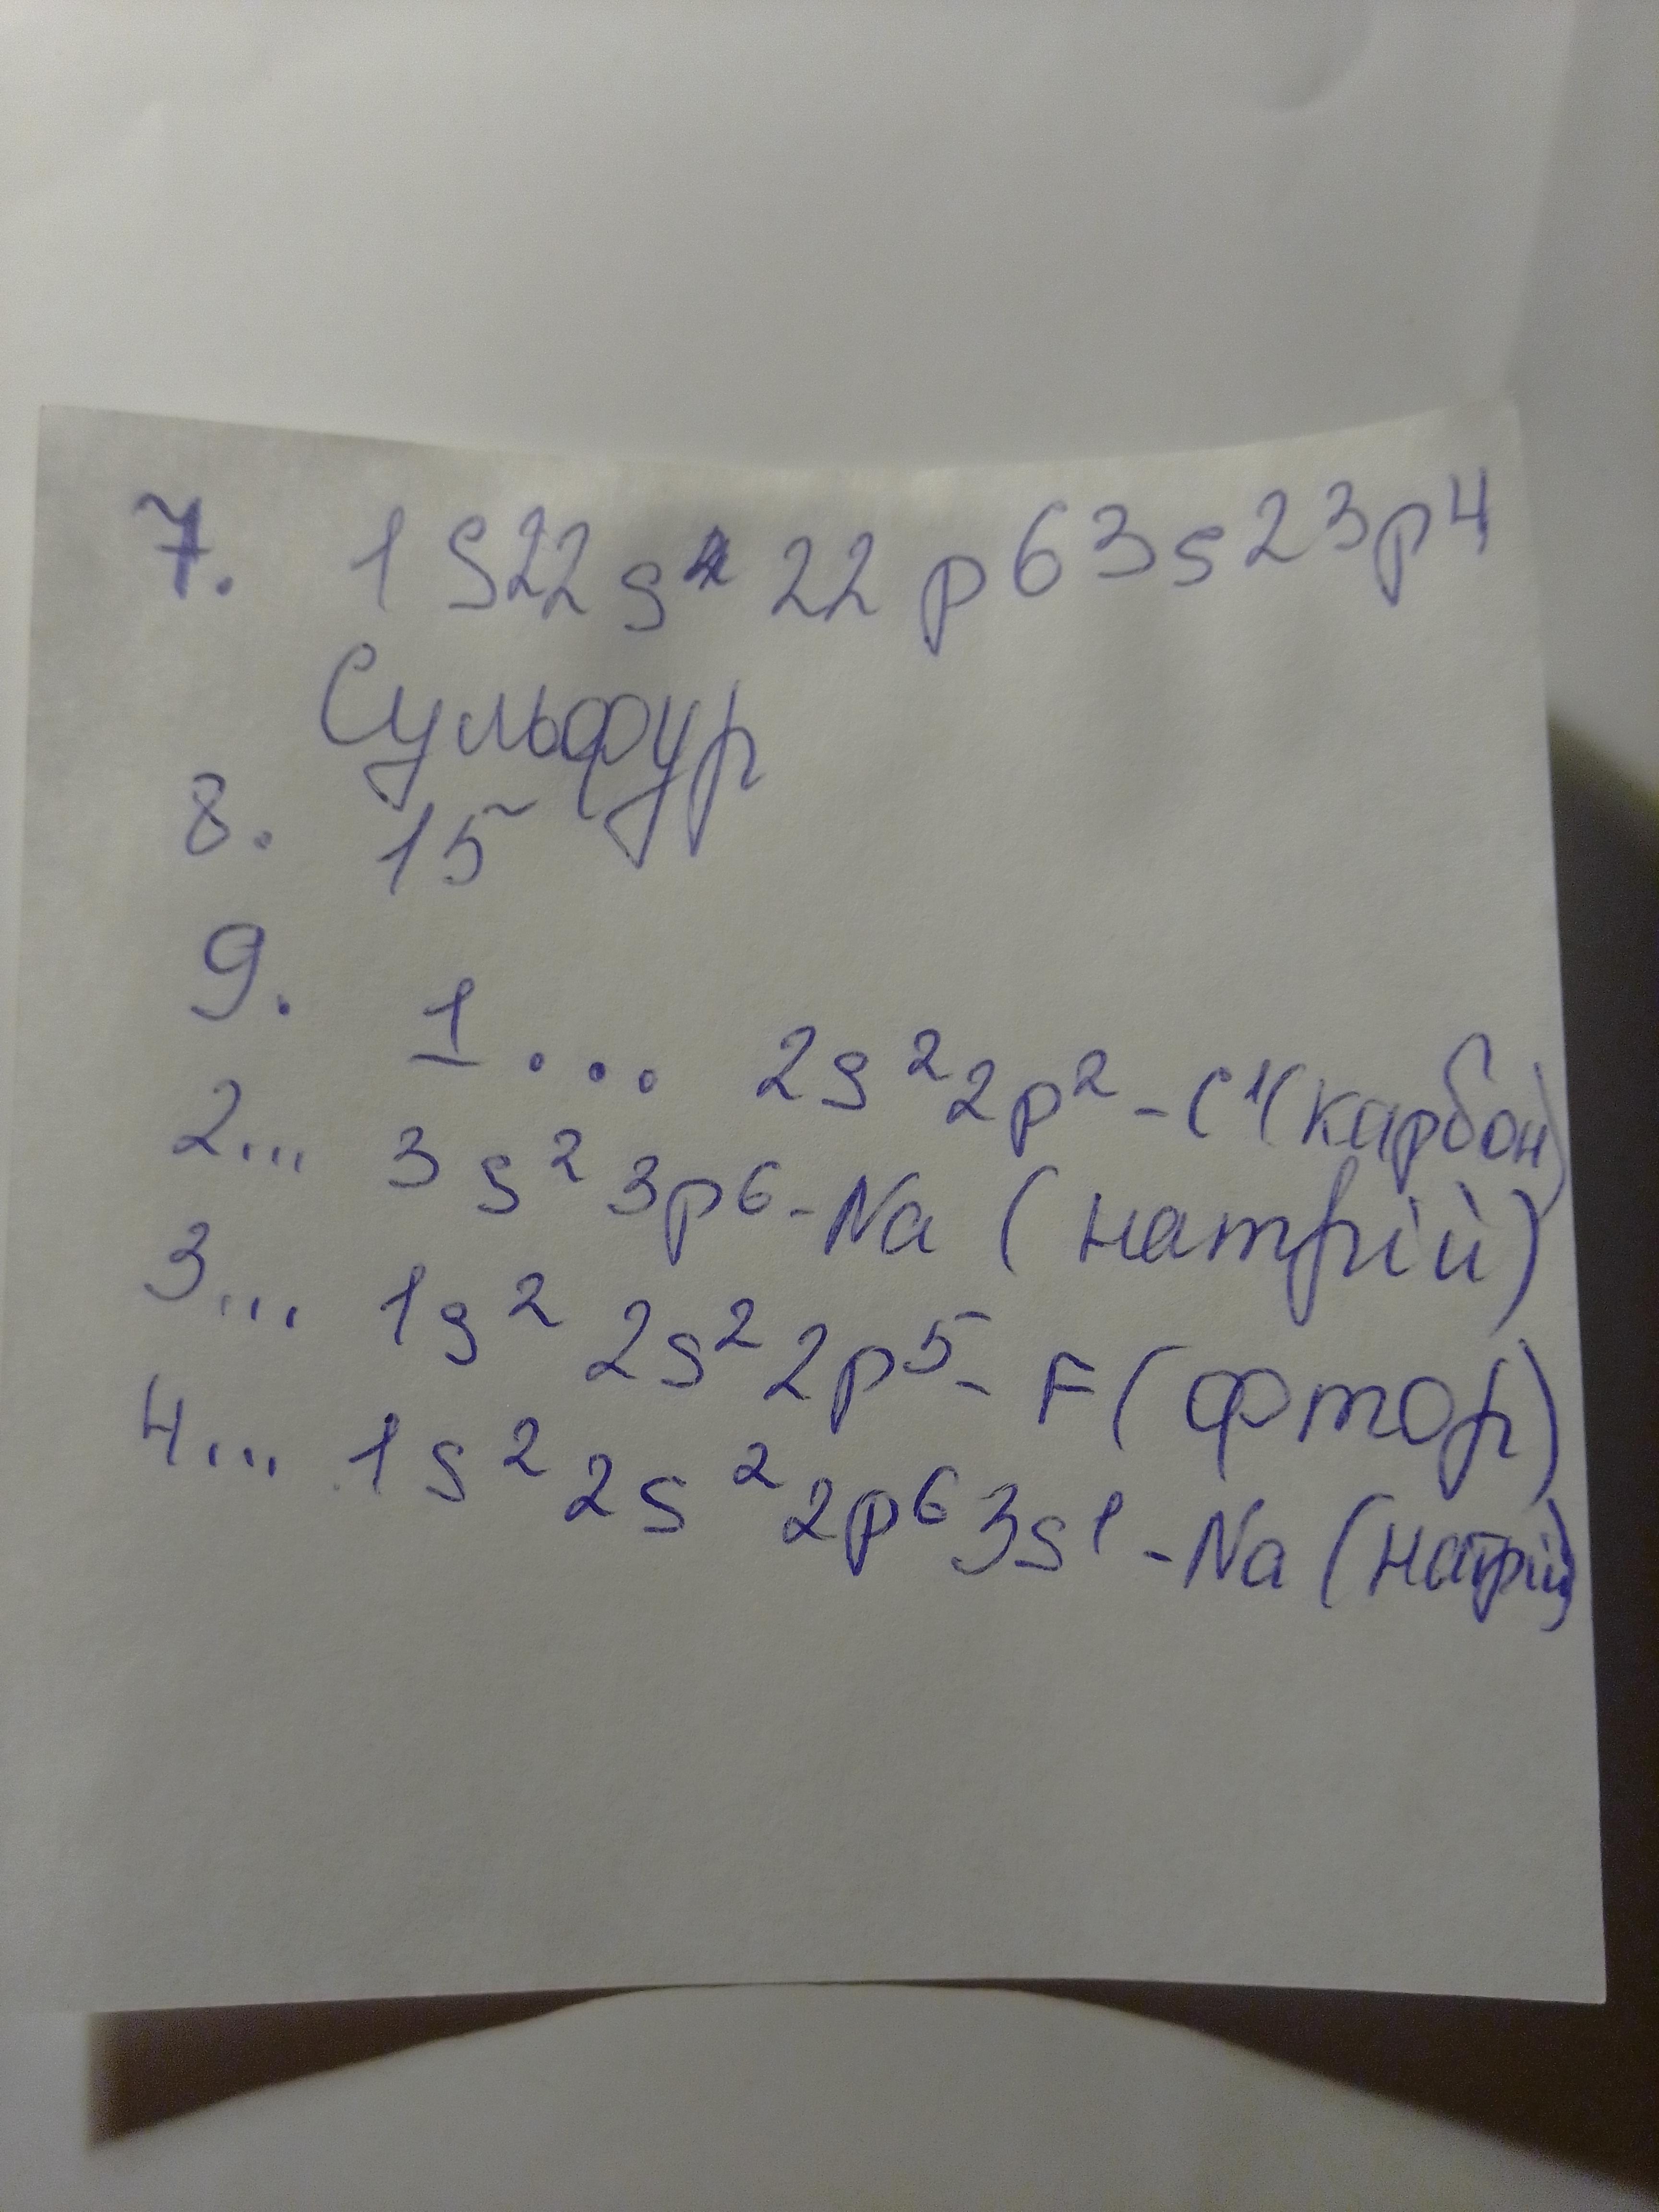 7. 1 S22s 22 p63s23p4
Сульфур
8. 15
9.
1... 2s²2p² - C (карбон)
2... 3s²3p⁶ - Na (натрій)
3... 1s² 2s² 2p⁵ - F (фтор)
4... 1s² 2s² 2p⁶ 3s¹ - Na (натрій)